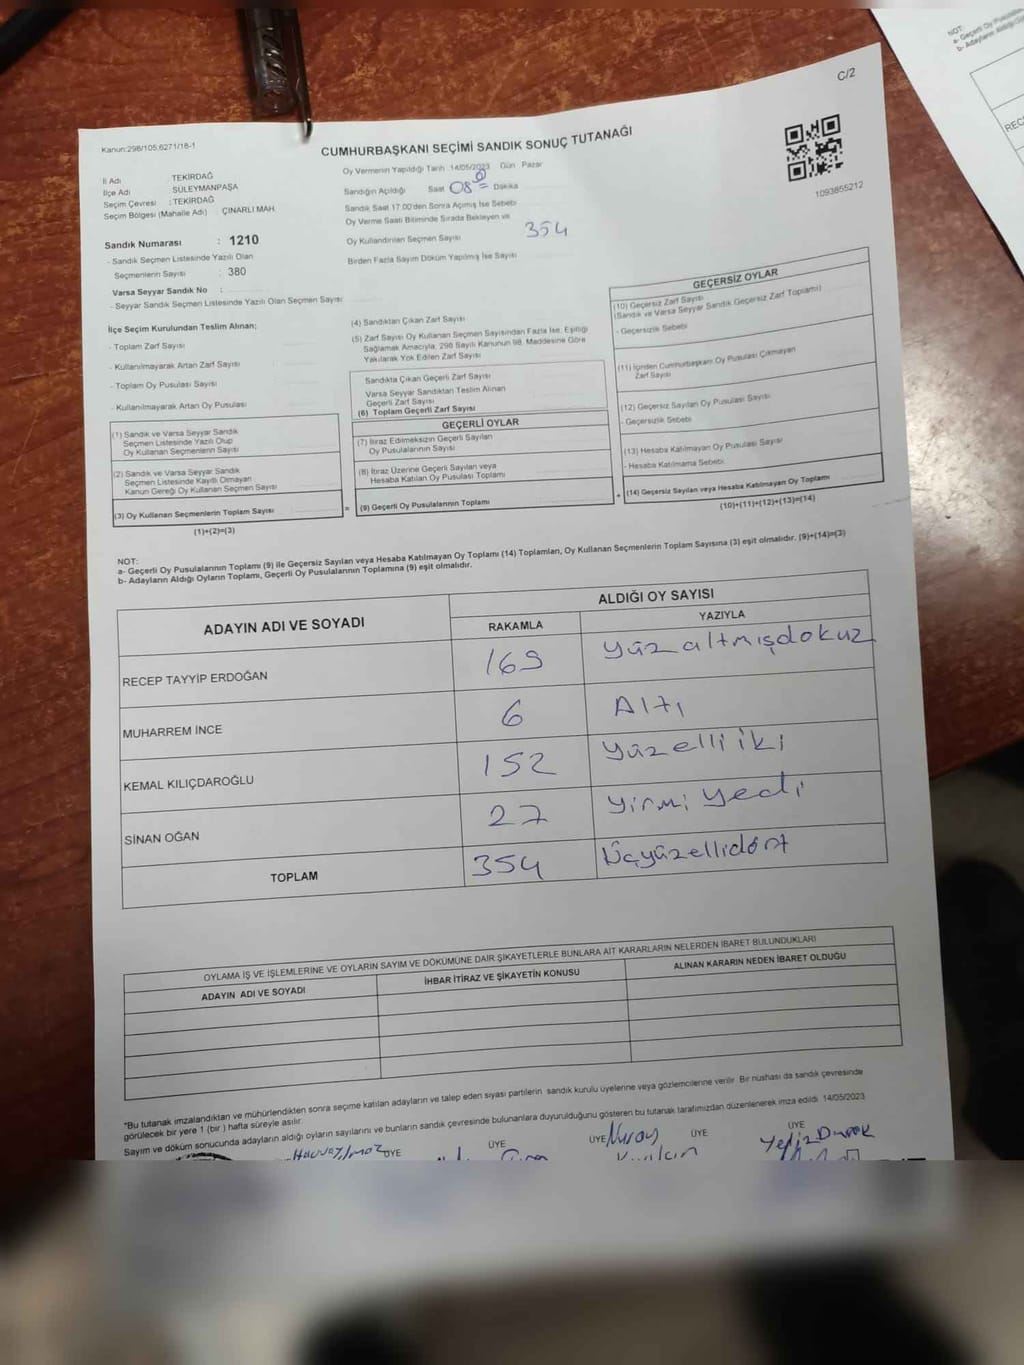 C/2
Kanun:298/105;6271/18-1
CUMHURBAŞKANI SEÇİMİ SANDIK SONUÇ TUTANAĞI
1093855212
İl Adı TEKİRDAĞ
İlçe Adı SÜLEYMANPAŞA
Seçim Çevresi : TEKİRDAĞ
Seçim Bölgesi (Mahalle Adı) : ÇINARLI MAH.
Sandık Numarası : 1210
- Sandık Seçmen Listesinde Yazılı Olan
Seçmenlerin Sayısı : 380
Varsa Seyyar Sandık No :
- Seyyar Sandık Seçmen Listesinde Yazılı Olan Seçmen Sayısı:
Oy Vermenin Yapıldığı Tarih 14/05/2023 Gün Pazar
Sandığın Açıldığı Saat 08 Dakika
Sandık Saat 17:00'den Sonra Açımış İse Sebebi
Oy Verme Saati Bitiminde Sırada Bekleyen ve
Oy Kullandırılan Seçmen Sayısı 354
Birden Fazla Sayım Döküm Yapılmış İse Sayısı
İlçe Seçim Kurulundan Teslim Alınan;
- Toplam Zarf Sayısı
- Kullanılmayarak Artan Zarf Sayısı
- Toplam Oy Pusulası Sayısı
- Kullanılmayarak Artan Oy Pusulası
(1) Sandık ve Varsa Seyyar Sandık
Seçmen Listesinde Yazılı Olup
Oy Kullanan Seçmenlerin Sayısı
(2) Sandık ve Varsa Seyyar Sandık
Seçmen Listesinde Kayıtlı Olmayan
Kanun Gereği Oy Kullanan Seçmen Sayısı
(3) Oy Kullanan Seçmenlerin Toplam Sayısı
(1)+(2)=(3)
=
(4) Sandıktan Çıkan Zarf Sayısı
(5) Zarf Sayısı Oy Kullanan Seçmen Sayısından Fazla İse, Eşitliği
Sağlamak Amacıyla, 298 Sayılı Kanunun 98. Maddesine Göre
Yakılarak Yok Edilen Zarf Sayısı
Sandıkta Çıkan Geçerli Zarf Sayısı
Varsa Seyyar Sandıktan Teslim Alınan
Geçerli Zarf Sayısı
(6) Toplam Geçerli Zarf Sayısı
GEÇERLİ OYLAR
(7) İtiraz Edilmeksizin Geçerli Sayılan
Oy Pusulalarının Sayısı
(8) İtiraz Üzerine Geçerli Sayılan veya
Hesaba Katılan Oy Pusulası Toplamı
(9) Geçerli Oy Pusulalarının Toplamı
+
GEÇERSİZ OYLAR
(10) Geçersiz Zarf Sayısı
(Sandık ve Varsa Seyyar Sandık Geçersiz Zarf Toplamı)
- Geçersizlik Sebebi
(11) İçinden Cumhurbaşkanı Oy Pusulası Çıkmayan
Zarf Sayısı
(12) Geçersiz Sayılan Oy Pusulası Sayısı
- Geçersizlik Sebebi
(13) Hesaba Katılmayan Oy Pusulası Sayısı
- Hesaba Katılmama Sebebi
(14) Geçersiz Sayılan veya Hesaba Katılmayan Oy Toplamı
(10)+(11)+(12)+(13)=(14)
NOT:
a- Geçerli Oy Pusulalarının Toplamı (9) ile Geçersiz Sayılan veya Hesaba Katılmayan Oy Toplamı (14) Toplamları, Oy Kullanan Seçmenlerin Toplam Sayısına (3) eşit olmalıdır. (9)+(14)=(3)
b- Adayların Aldığı Oyların Toplamı, Geçerli Oy Pusulalarının Toplamına (9) eşit olmalıdır.
ADAYIN ADI VE SOYADI ALDIĞI OY SAYISI
RAKAMLA YAZIYLA
RECEP TAYYİP ERDOĞAN 169 yüzaltmışdokuz
MUHARREM İNCE 6 Altı
KEMAL KILIÇDAROĞLU 152 yüzelli iki
SİNAN OĞAN 27 yirmi yedi
TOPLAM 354 Üçyüzellidört
OYLAMA İŞ VE İŞLEMLERİNE VE OYLARIN SAYIM VE DÖKÜMÜNE DAİR ŞİKAYETLERLE BUNLARA AİT KARARLARIN NELERDEN İBARET BULUNDUKLARI
ADAYIN ADI VE SOYADI İHBAR İTİRAZ VE ŞİKAYETİN KONUSU ALINAN KARARIN NEDEN İBARET OLDUĞU
*Bu tutanak imzalandıktan ve mühürlendikten sonra seçime katılan adayların ve talep eden siyasi partilerin sandık kurulu üyelerine veya gözlemcilerine verilir. Bir nüshası da sandık çevresinde
görülecek bir yere 1 (bir) hafta süreyle asılır.
Sayım ve döküm sonucunda adayların aldığı oyların sayılarını ve bunların sandık çevresinde bulunanlara duyurulduğunu gösteren bu tutanak tarafımızdan düzenlenerek imza edildi. 14/05/2023
ÜYE ÜYE ÜYE Nuray ÜYE ÜYE